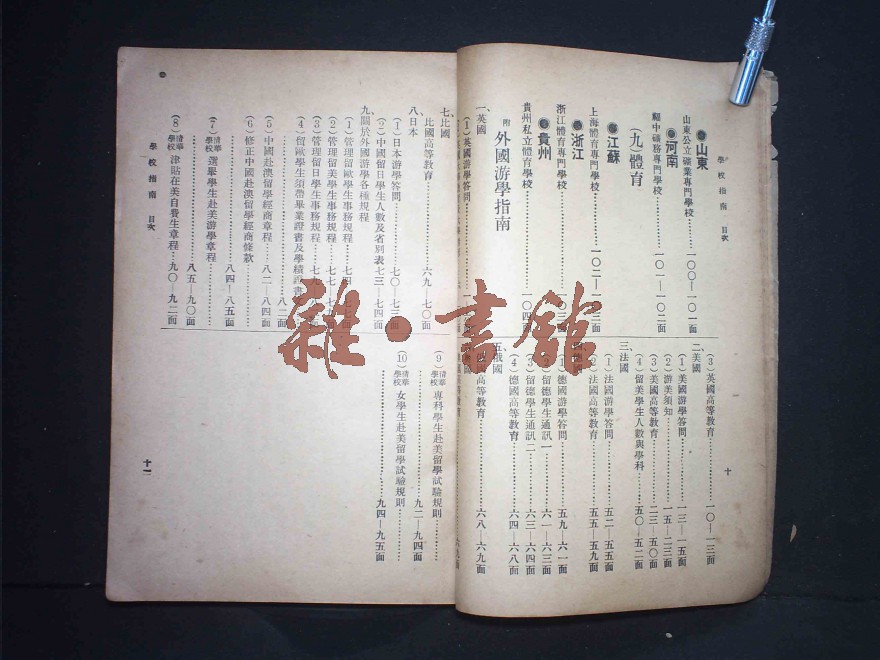 學校指南 目次
十
山東
山東公立礦業專門學校……一〇〇—一〇一面
河南
福中礦務專門學校……一〇一—一〇二面
(九)體育
江蘇
上海體育專門學校……一〇二—一〇三面
浙江
浙江體育專門學校……一〇三面
貴州
貴州私立體育學校……一〇四面
附 外國游學指南
一、英國
(1)英國游學答問
(3)英國高等教育……一〇—一三面
二、美國
(1)美國游學答問……一三—一五面
(2)游美須知……一五—二三面
(3)美國高等教育……二三—五〇面
(4)留美學生人數與學科……五〇—五二面
三、法國
(1)法國游學答問……五二—五五面
(2)法國高等教育……五五—五九面
(1)德國游學答問……五九—六一面
(2)留德學生通訊一……六一—六三面
(3)留德學生通訊二……六三—六四面
(4)德國高等教育……六四—六八面
五、俄國
俄國高等教育……六八—六九面
七、比國
比國高等教育……六九—七〇面
八、日本
(1)日本游學答問……七〇—七三面
(2)中國留日學生人數及省別表七三—七四面
九、關於外國游學各種規程
(1)管理留歐學生事務規程……七四
(2)管理留美學生事務規程……七七
(3)管理留日學生事務規程……七九
(4)留歐學生須帶畢業證書及學績證書
……八二面
(5)中國赴澳留學經商章程……八二—八四面
(6)修正中國赴澳留學經商條款
……八四—八五面
(7)清華學校選舉學生赴美游學章程
……八五—九〇面
(8)清華學校津貼在美自費生章程……九〇—九二面
(9)清華學校專科學生赴美留學試驗規則
……九二—九四面
(10)清華學校女學生赴美留學試驗規則
……九四—九五面
學校指南 目次
十一
雜·書館